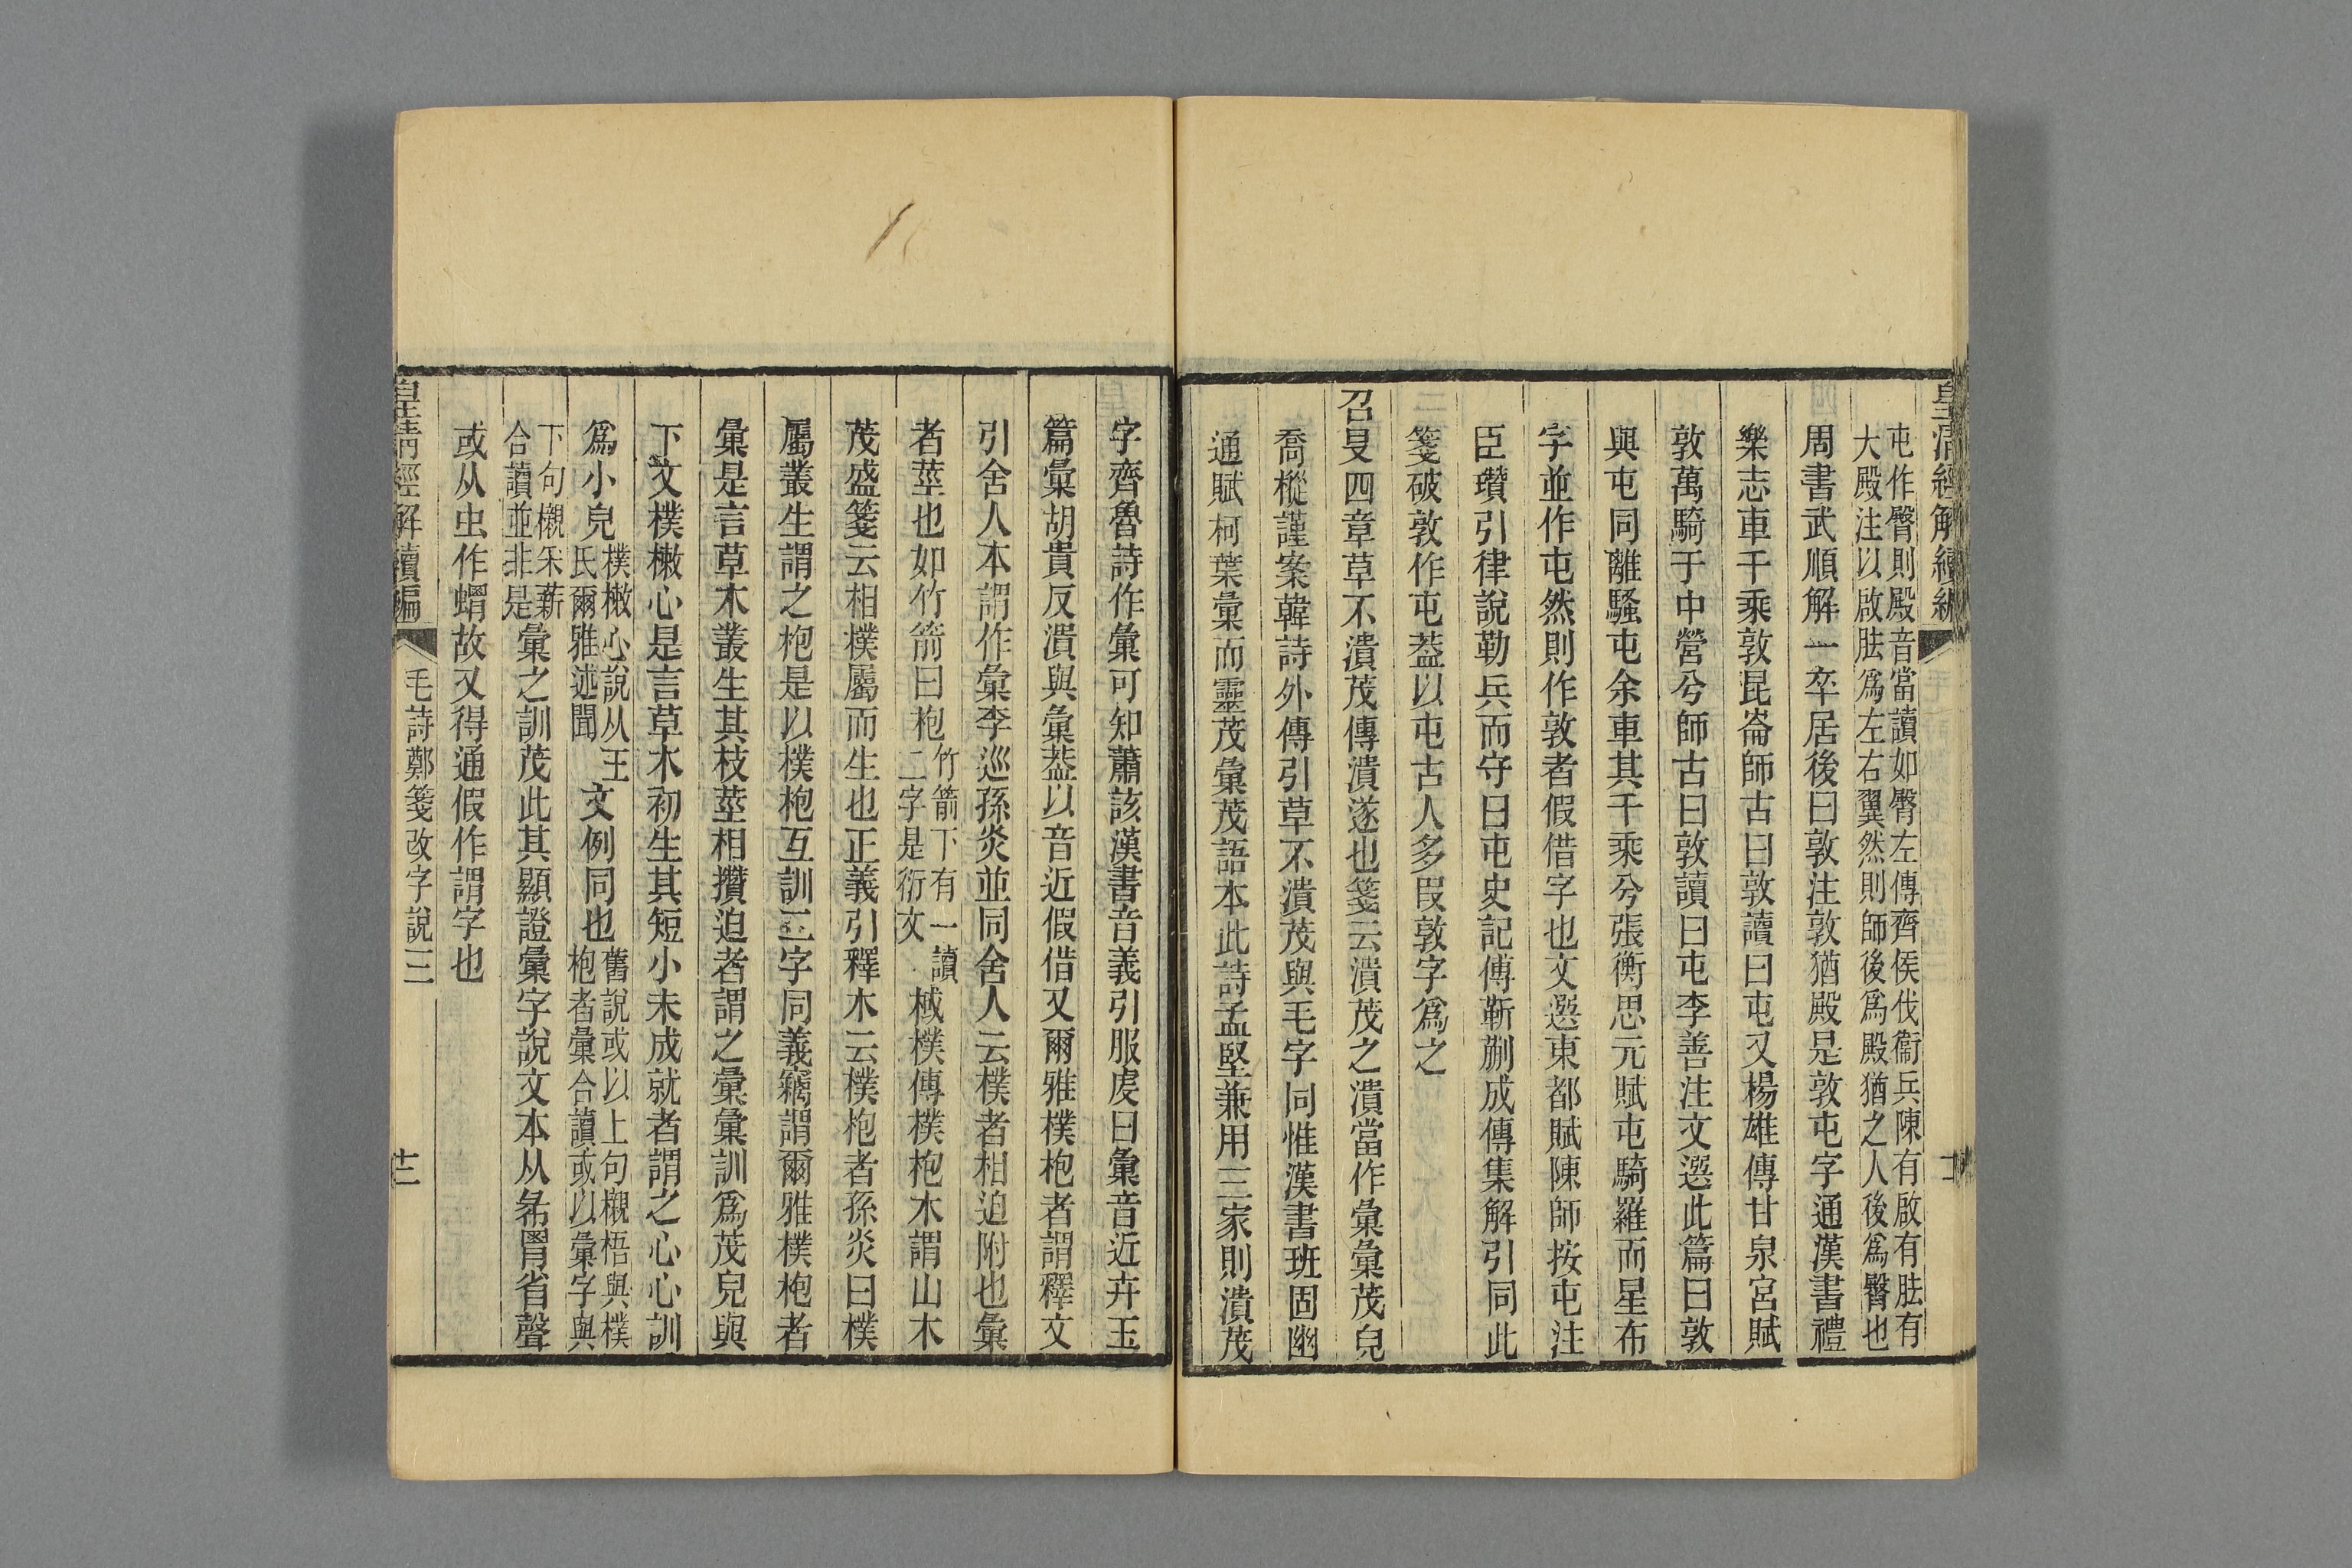 皇清經解續編
屯作臀則殿音當讀如臀左傳齊侯伐衞兵陳有啟有胠有
大殿注以啟胠爲左右翼然則師後爲殿猶之人後爲臀也
周書武順解一卒居後曰敦注敦猶殿是敦屯字通漢書禮
樂志車千乘敦昆崙師古曰敦讀曰屯又楊雄傳甘泉宮賦
敦萬騎于中營兮師古曰敦讀曰屯李善注文選此篇曰敦
與屯同離騷屯余車其千乘兮張衡思元賦屯騎羅而星布
字並作屯然則作敦者假借字也文選東都賦陳師按屯注
臣瓚引律說勒兵而守曰屯史記傅靳蒯成傳集解引同此
箋破敦作屯葢以屯古人多叚敦字爲之
召旻四章草不潰茂傳潰遂也箋云潰茂之潰當作彙彙茂皃
喬樅謹案韓詩外傳引草不潰茂與毛字同惟漢書班固幽
通賦柯葉彙而靈茂彙茂語本此詩孟堅兼用三家則潰茂
字齊魯詩作彙可知蕭該漢書音義引服虔曰彙音近卉玉
篇彙胡貴反潰與彙葢以音近假借又爾雅樸枹者謂釋文
引舍人本謂作彙李巡孫炎並同舍人云樸者相迫附也彙
者莖也如竹箭曰枹
竹箭下有一讀
二字是衍文
棫樸傳樸枹木謂山木
茂盛箋云相樸屬而生也正義引釋木云樸枹者孫炎曰樸
屬叢生謂之枹是以樸枹互訓二字同義竊謂爾雅樸枹者
彙是言草木叢生其枝莖相攢迫者謂之彙彙訓爲茂皃與
下文樸樕心是言草木初生其短小未成就者謂之心心訓
爲小皃
樸樕心說从王
氏爾雅述聞
文例同也
舊說或以上句櫬梧與樸
枹者彙合讀或以彙字與
下句櫬采薪
合讀並非是
彙之訓茂此其顯證彙字說文本从㣇胃省聲
或从虫作蝟故又得通假作謂字也
皇清經解續編
毛詩鄭箋改字說三
十二